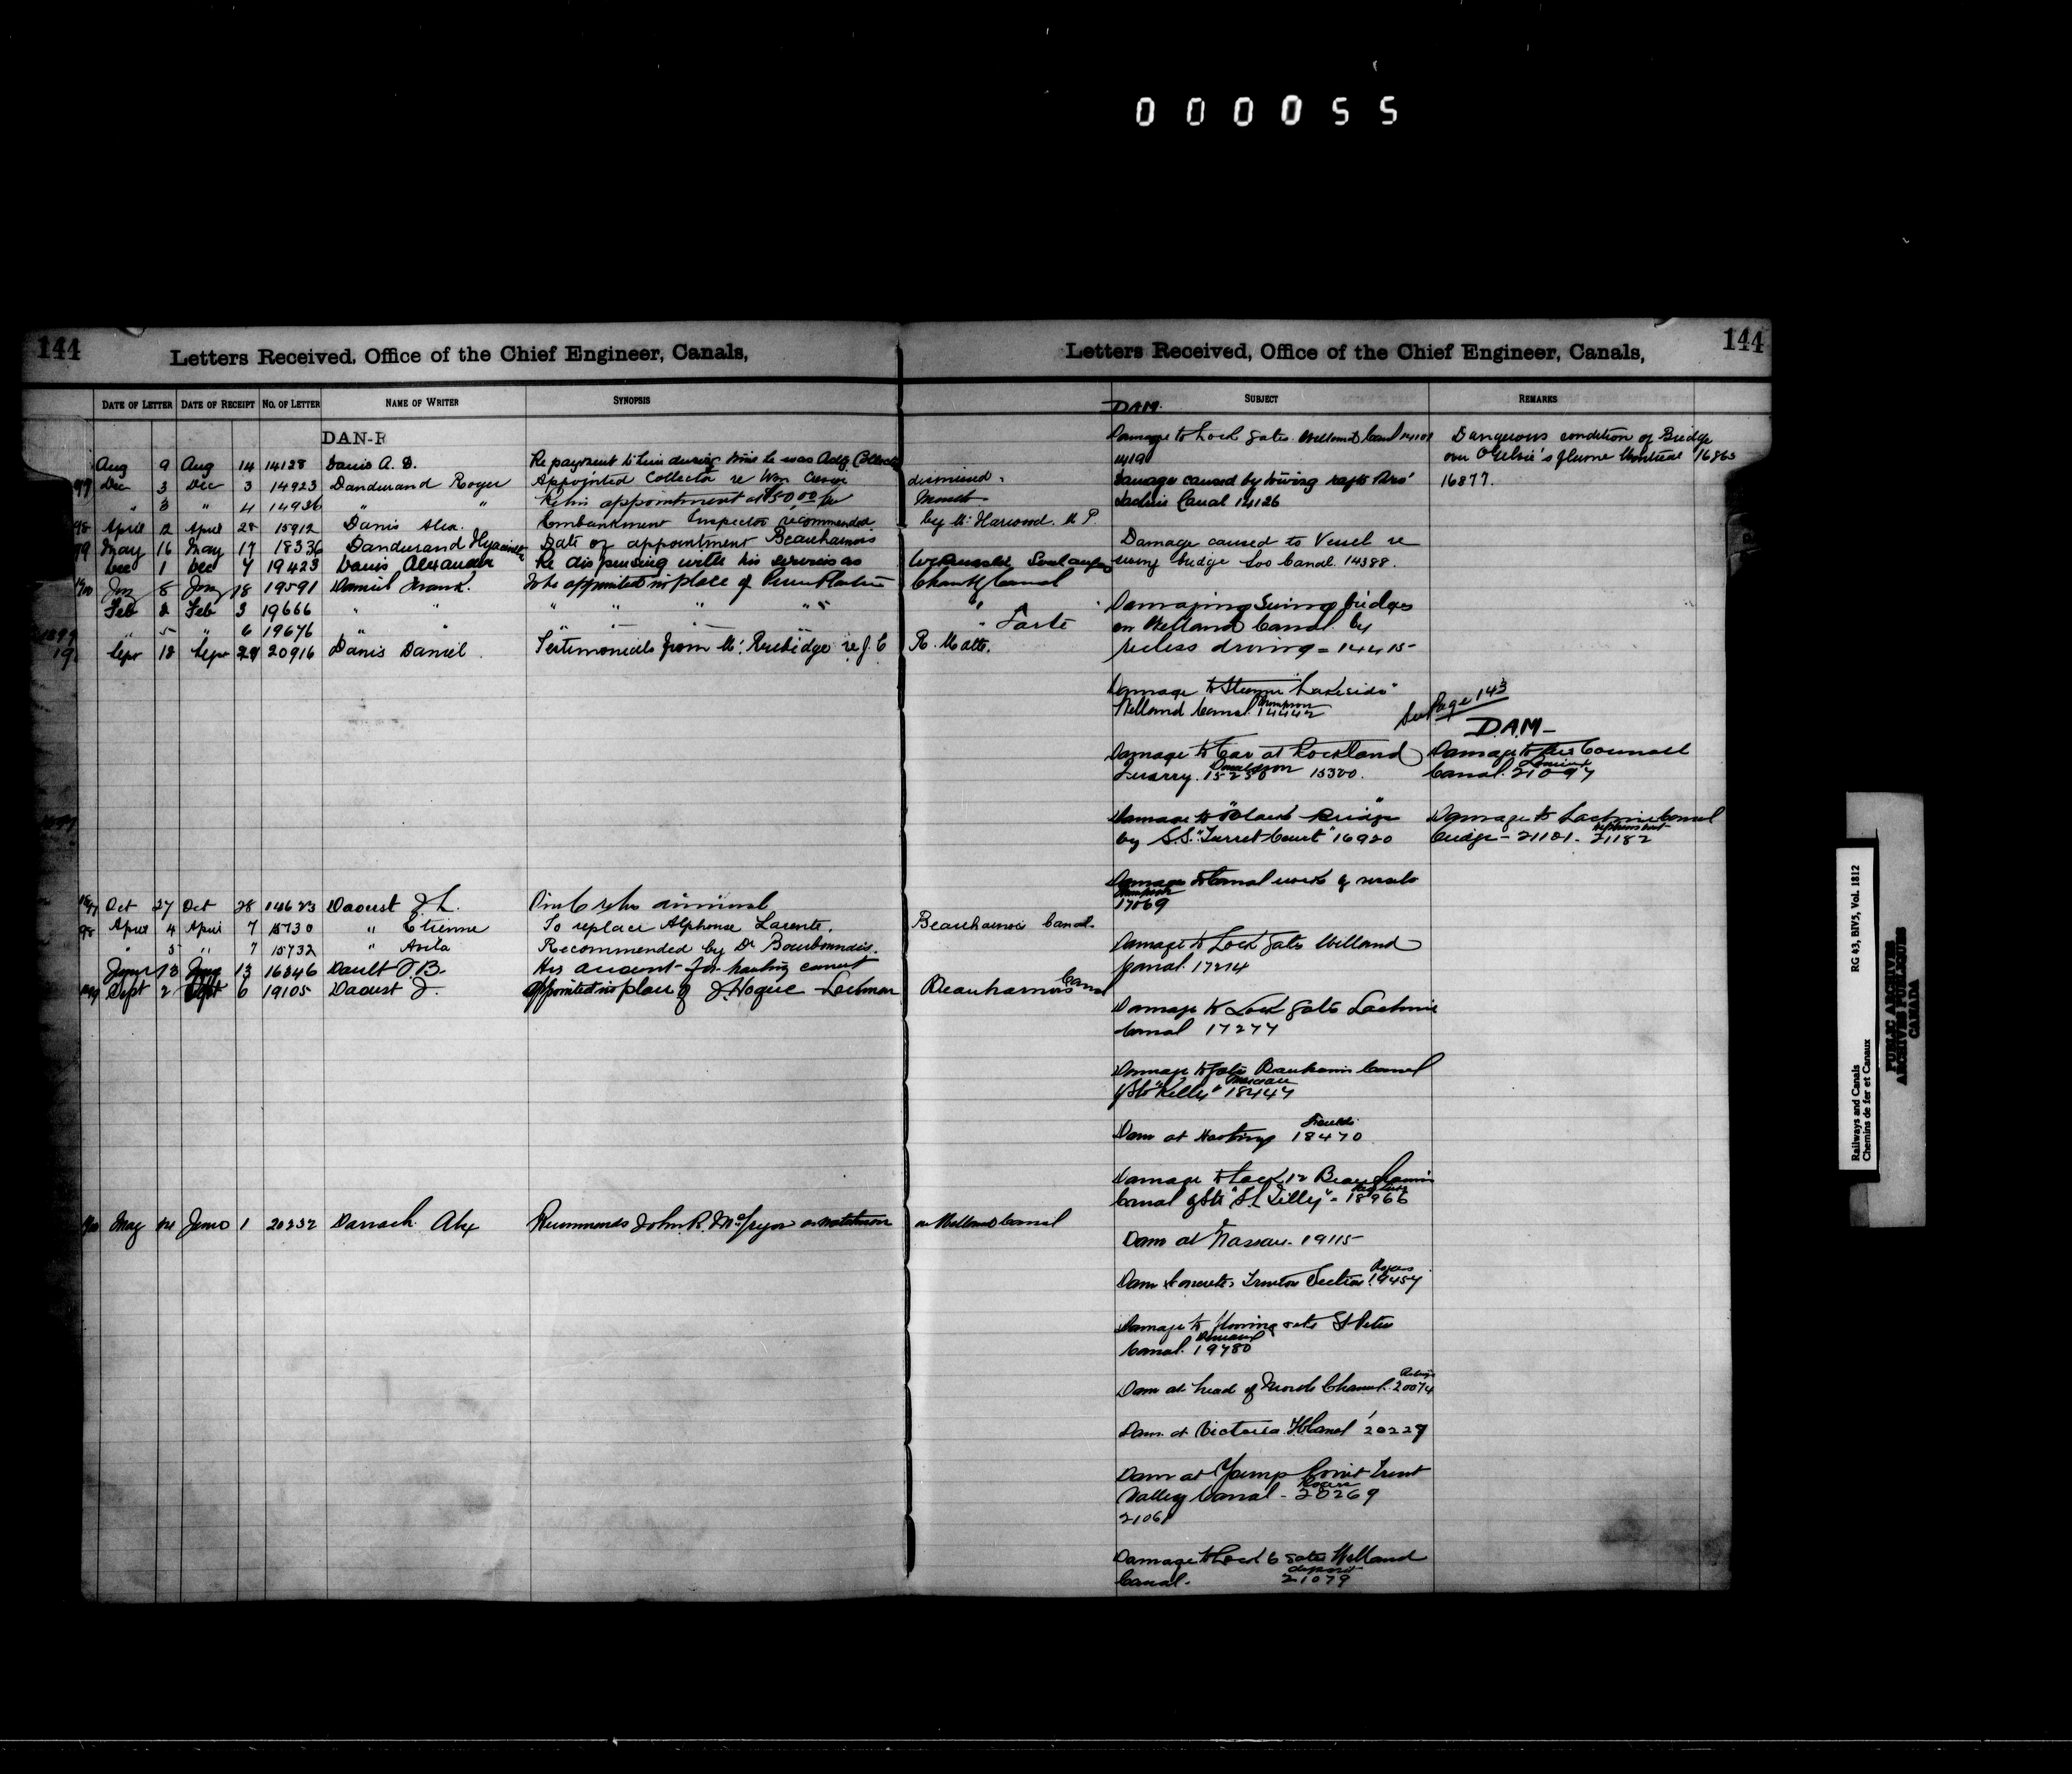 000055
144
Letters Received, Office of the Chief Engineer, Canals,
DATE OF LETTER DATE OF RECEIPT NO. OF LETTER NAME OF WRITER SYNOPSIS
DAN-R
Aug 9 Aug 14 14128 Danis A. D. Re payment to him during time he was Actg Collector
97 Dec 3 Dec 3 14923 Dandurand Roger Appointed Collector re Wm dismissed.
" 3 " 4 14936 " " Re his appointment at $50.00 per Month
98 April 12 April 28 15912 Danis Alex. Embankment Inspector recommended by Mr Harwood. M P.
99 May 16 May 17 18336 Dandurand Hyacinthe Date of appointment Beauharnois
Dec 1 Dec 4 19423 Danis Alexander Re dispensing with his services as Soulanges
1900 Jany 8 Jany 18 19591 Daniel Frank. To be appointed in place of Chambly Canal
Feb 2 Feb 3 19666 " " " " " " "
" 5 " 6 19676 " " " " Tarte
Sept 18 Sept 24 20916 Danis Daniel. Testimonials from Mr. Rubidge re J. C R. Matte.
1897 Oct 27 Oct 28 14623 Daoust J. L.
98 April 4 April 7 15730 " Etienne To replace Alphonse Larente. Beauharnois Canal.
" 5 " 7 15732 " Avila Recommended by Dr Bourbonnais.
June 13 June 13 16346 Dault J. B. His account for hauling cement
1899 Sept 2 Sept 6 19105 Daoust J. Appointed in place of J. Hogue Lockman Beauharnois Canal
1900 May June 1 20232 Darrach. Alex Recommends John R. McGregor as watchman on Welland Canal
Letters Received, Office of the Chief Engineer, Canals,
144
SUBJECT REMARKS
DAM.
Damage to Lock gates. Welland Canal 14101
14191
Damage caused by towing rafts thro'
Lachine Canal 14126
Damage caused to Vessel re
swing bridge Soo Canal. 14388.
Damaging Swing bridges
on Welland Canal by
reckless driving = 14415
Damage to Steamer "Lakeside"
Welland Canal. Thompson 14442
Damage to Car at Rockland
Quarry. Donaldson 15258 15300.
Damage to "Black Bridge"
by S.S. "Turret Court" 16920
Damage to Canal works by vessels
Thompson
17069
Damage to Lock gates Welland
Canal. 17274
Damage to Lock gates Lachine
Canal 17277
Damage to gates Beauharnois Canal
by Str "Kelly" 18447
Dam at Hastings 18470
Damage to Lock 12 Beauharnois
Canal by Str 18966
Dam at Nassau. 19115
Dam Concrete, Trenton Section. Rogers 19454
Damage to gate St Peters
Canal. 19780
Dam at head of North Channel. Rubidge 20074
Dam at Victoria 20229
Dam at Young's Point Trent
Valley Canal - Rogers 20269
21061
Damage to Lock 6 gates Welland
Canal. 21079
Dangerous condition of Bridge
over Ogilvie's flume Montreal 16863
16877.
See Page 143
DAM-
Damage to Cornwall
Canal. 21097
Damage to Lachine Canal
bridge - 21101. 21182
Railways and Canals RG 43, BIV5, Vol. 1812
Chemins de fer et Canaux
PUBLIC ARCHIVES
ARCHIVES PUBLIQUES
CANADA